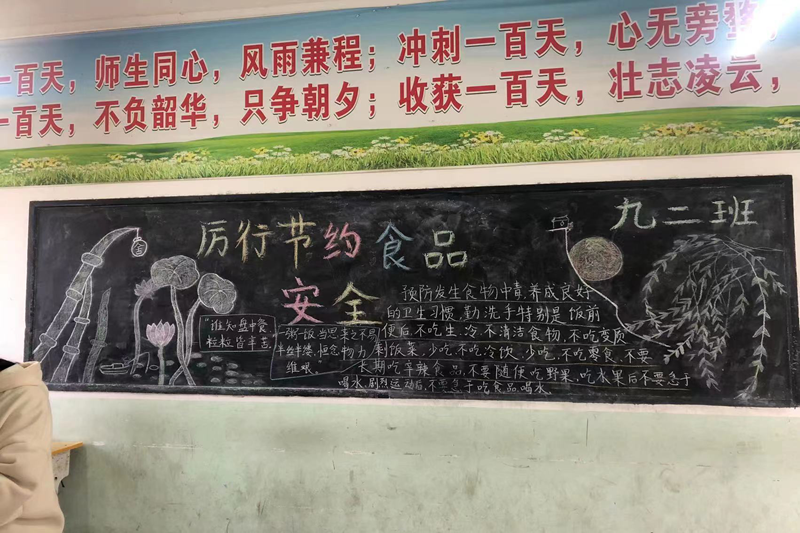 一百天，师生同心，风雨兼程；冲刺一百天，心无旁骛，
一百天，不负韶华，只争朝夕；收获一百天，壮志凌云，
九二班
厉行节约食品
安全
"谁知盘中餐
粒粒皆辛苦
一粥一饭，当思来之不易
半丝半缕，恒念物力
维艰。
预防发生食物中毒，养成良好
的卫生习惯，勤洗手特别是饭前
便后不吃生、冷不清洁食物，不吃变质
剩饭菜，少吃、不吃冷饮，少吃、不吃零食，不要
长期吃辛辣食品，不要随便吃野果，吃水果后不要急于
喝水，剧烈运动后，不要急于吃食品，喝水